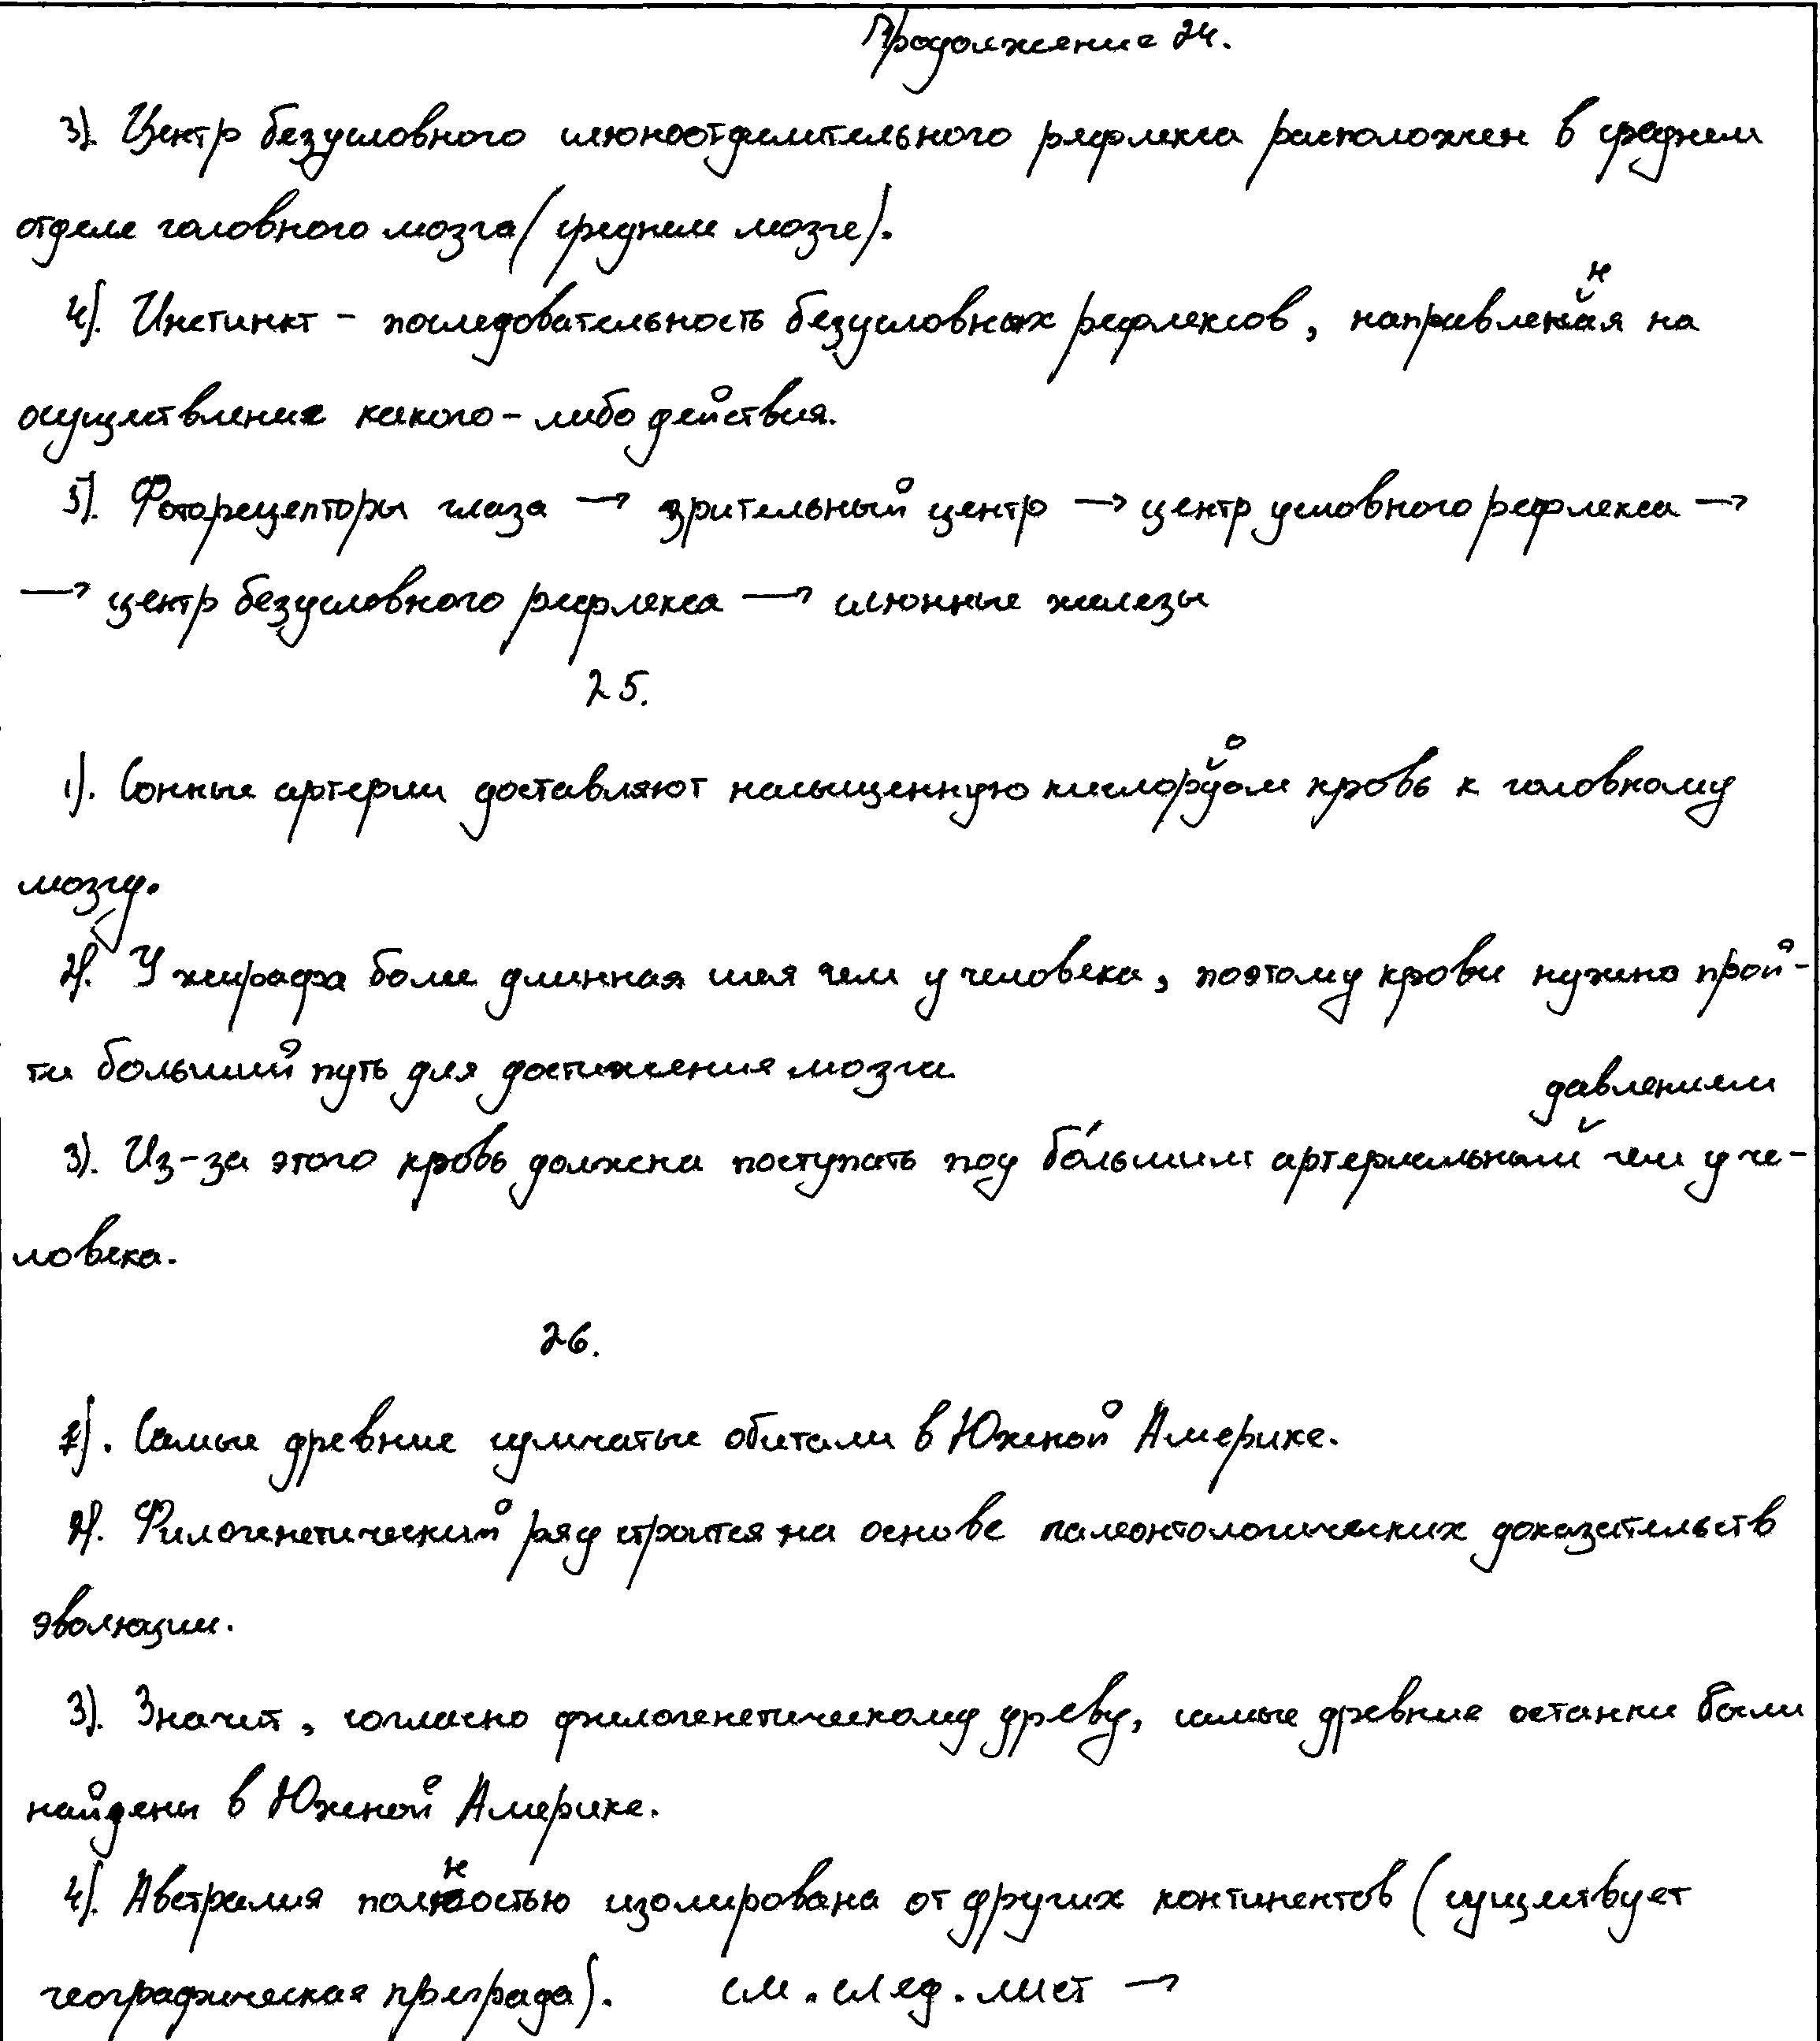 Продолжение 24.
3). Центр безусловного слюноотделительного рефлекса расположен в среднем
отделе головного мозга (среднем мозге).
4). Инстинкт – последовательность безусловных рефлексов, направленная на
осуществление какого-либо действия.
5). Фоторецепторы глаза → зрительный центр → центр условного рефлекса →
→ центр безусловного рефлекса → слюнные железы
25.
1). Сонные артерии доставляют насыщенную кислородом кровь к головному
мозгу.
2). У жирафа более длинная шея чем у человека, поэтому крови нужно прой-
ти больший путь для достижения мозга.
3). Из-за этого кровь должна поступать под бо́льшим артериальным давлением чем у че-
ловека.
26.
1). Самые древние сумчатые обитали в Южной Америке.
2). Филогенетический ряд строится на основе палеонтологических доказательств
эволюции.
3). Значит, согласно филогенетическому древу, самые древние останки были
найдены в Южной Америке.
4). Австралия полностью изолирована от других континентов (существует
географическая преграда). см. след. лист →